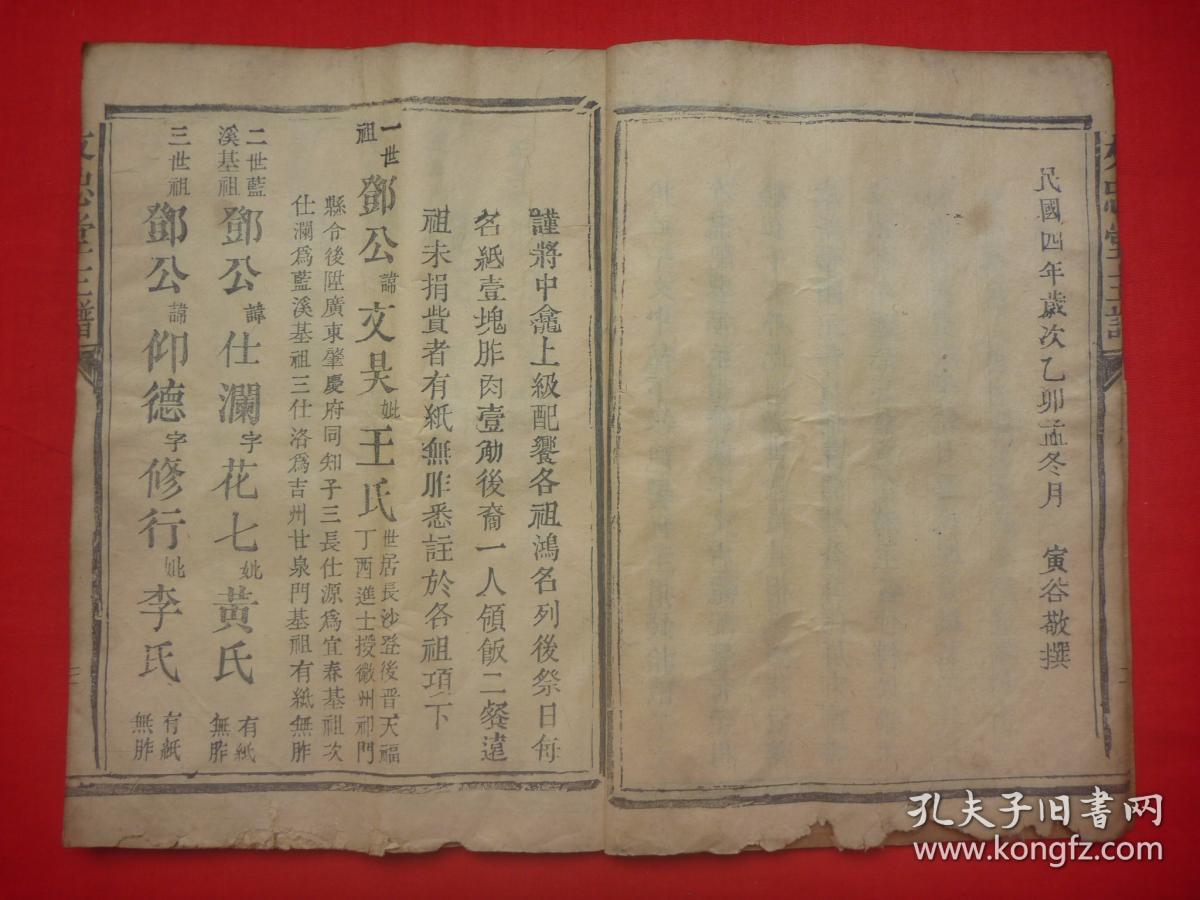 民國四年歲次乙卯孟冬月　寅谷敬撰
謹將中龕上級配饗各祖鴻名列後祭日每
名紙壹塊胙肉壹觔後裔一人領飯二餐遠
祖未捐貲者有紙無胙悉註於各祖項下
一世祖 鄧公 諱 文昊 妣 王氏 世居長沙登後晋天福丁酉進士授徽州祁門
縣令後陞廣東肇慶府同知子三長仕源爲宜春基祖次
仕瀾爲藍溪基祖三仕洛爲吉州甘泉門基祖有紙無胙
二世藍溪基祖 鄧公 諱 仕瀾 字 花七 妣 黃氏 有紙無胙
三世祖 鄧公 諱 仰德 字 修行 妣 李氏 有紙無胙
孔夫子旧书网
www.kongfz.com